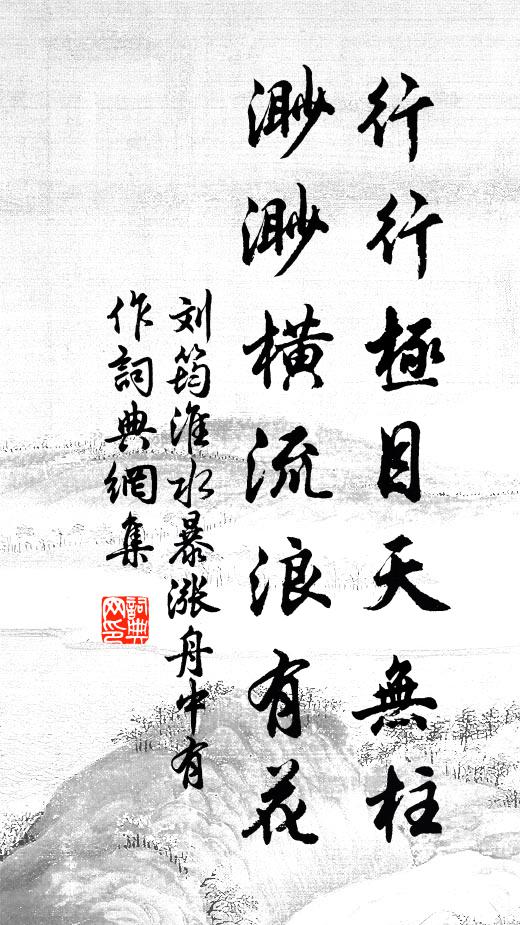 行行極目天無柱
渺渺橫流浪有花
刘筠淮水暴漲舟中有
作詞典網集
詞典
网印